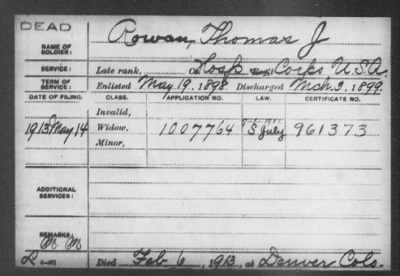 DEAD
NAME OF SOLDIER: Rowan, Thomas J
SERVICE: Late rank, Hosp Corps U.S.A.
TERM OF SERVICE: Enlisted May 19, 1898 Discharged Mch. 3, 1899
DATE OF FILING. CLASS. APPLICATION NO. LAW. CERTIFICATE NO.
Invalid,
1913 May 14 Widow, 1007764 S July 961373
Minor,
ADDITIONAL SERVICES:
REMARKS:
Died Feb. 6, 1913, at Denver Colo.